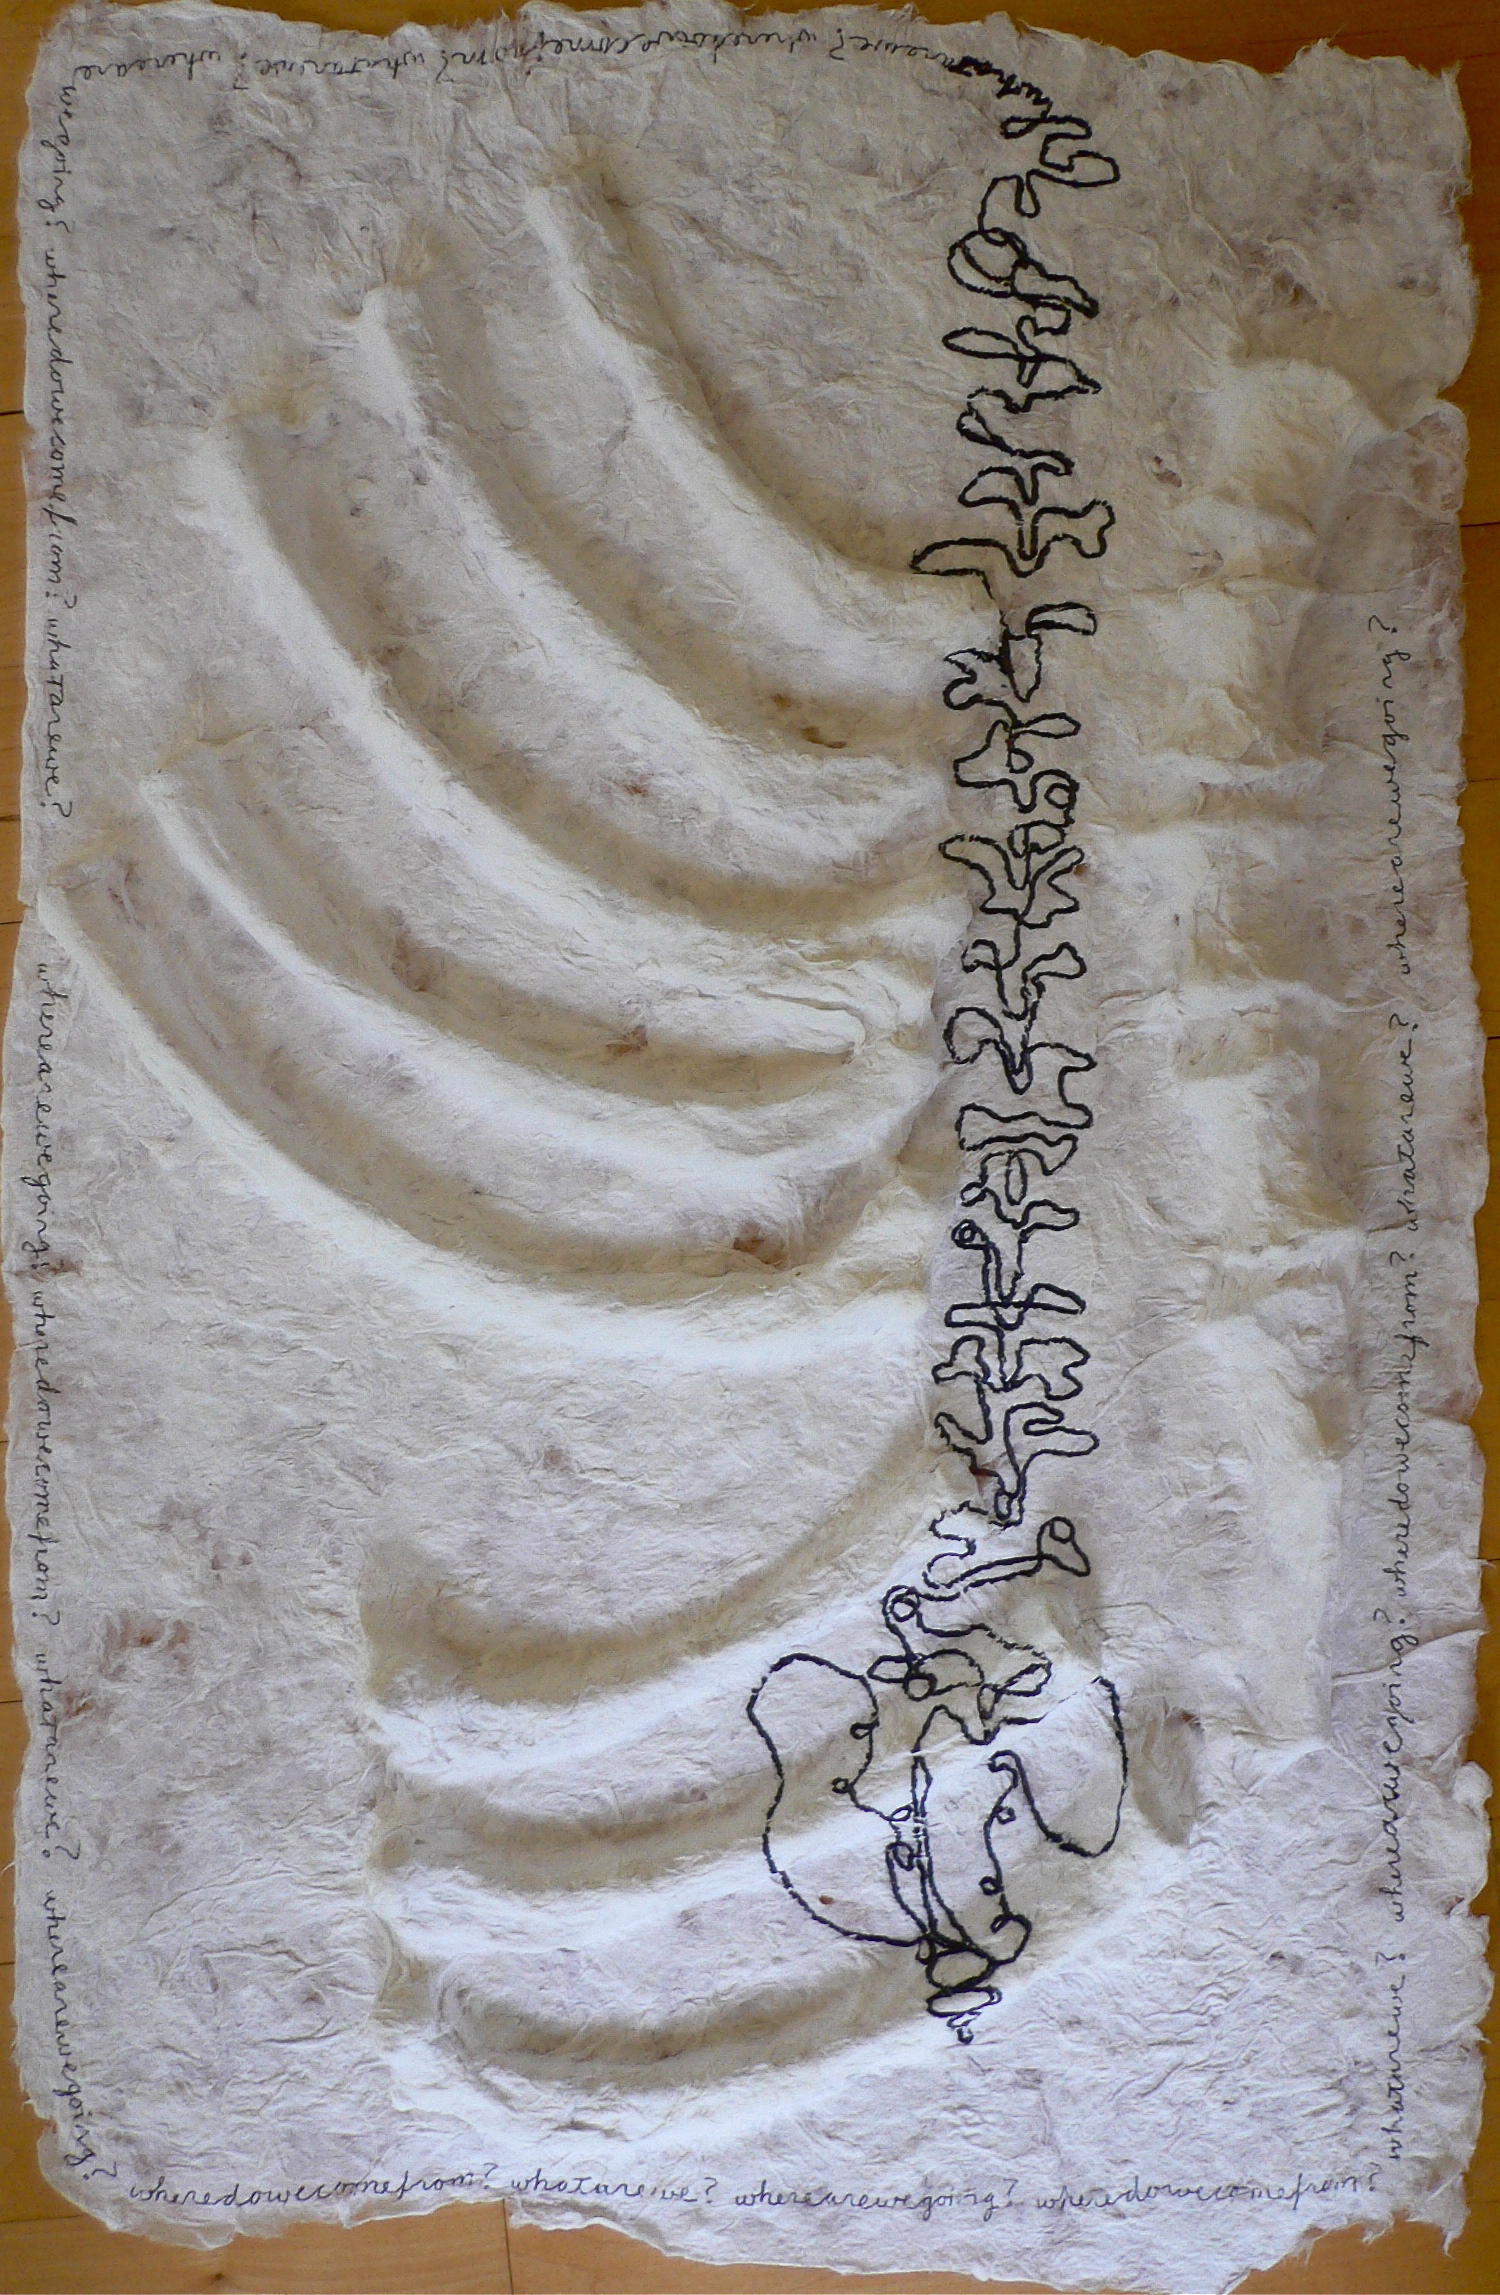 whatarewe? wheredowecomefrom? whatarewe? whereare
wegoing? wheredowesomefrom? whatarewe? wherearewegoing? wheredowecomefrom? whatarewe? wherearewegoing?
wheredowecomefrom? whatarewe? wherearewegoing? wheredowecomefrom?
whatarewe? wherearewegoing? wheredowecomefrom? whatarewe? wherearewegoing?